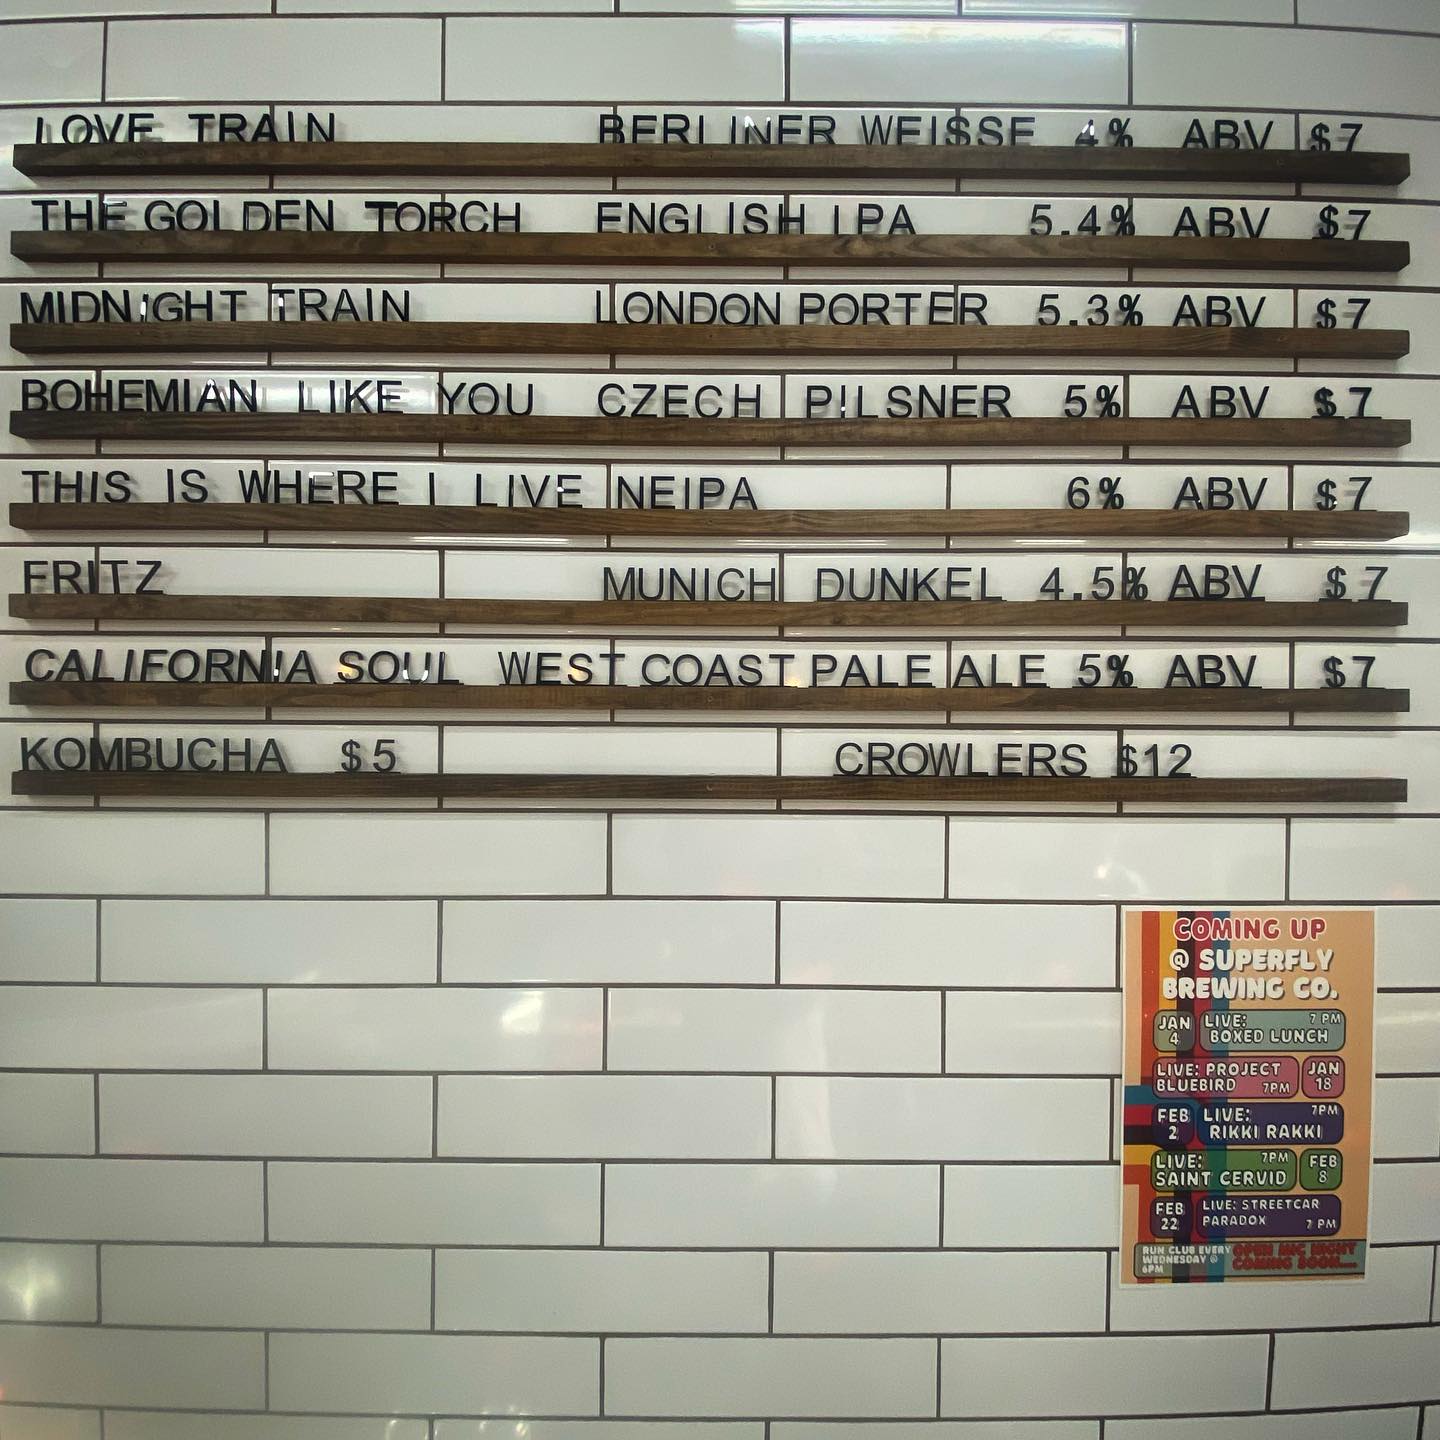 LOVE TRAIN BERLINER WEISSE 4% ABV $7
THE GOLDEN TORCH ENGLISH IPA 5.4% ABV $7
MIDNIGHT TRAIN LONDON PORTER 5.3% ABV $7
BOHEMIAN LIKE YOU CZECH PILSNER 5% ABV $7
THIS IS WHERE I LIVE NEIPA 6% ABV $7
FRITZ MUNICH DUNKEL 4.5% ABV $7
CALIFORNIA SOUL WEST COAST PALE ALE 5% ABV $7
KOMBUCHA $5 CROWLERS $12
COMING UP
@ SUPERFLY
BREWING CO.
JAN 4
LIVE: 7 PM
BOXED LUNCH
LIVE: PROJECT
BLUEBIRD 7PM
JAN 18
FEB 2
LIVE: 7PM
RIKKI RAKKI
LIVE: 7PM
SAINT CERVID
FEB 8
FEB 22
LIVE: STREETCAR
PARADOX 7 PM
RUN CLUB EVERY
WEDNESDAY @
6PM
OPEN MIC NIGHT
COMING SOON....